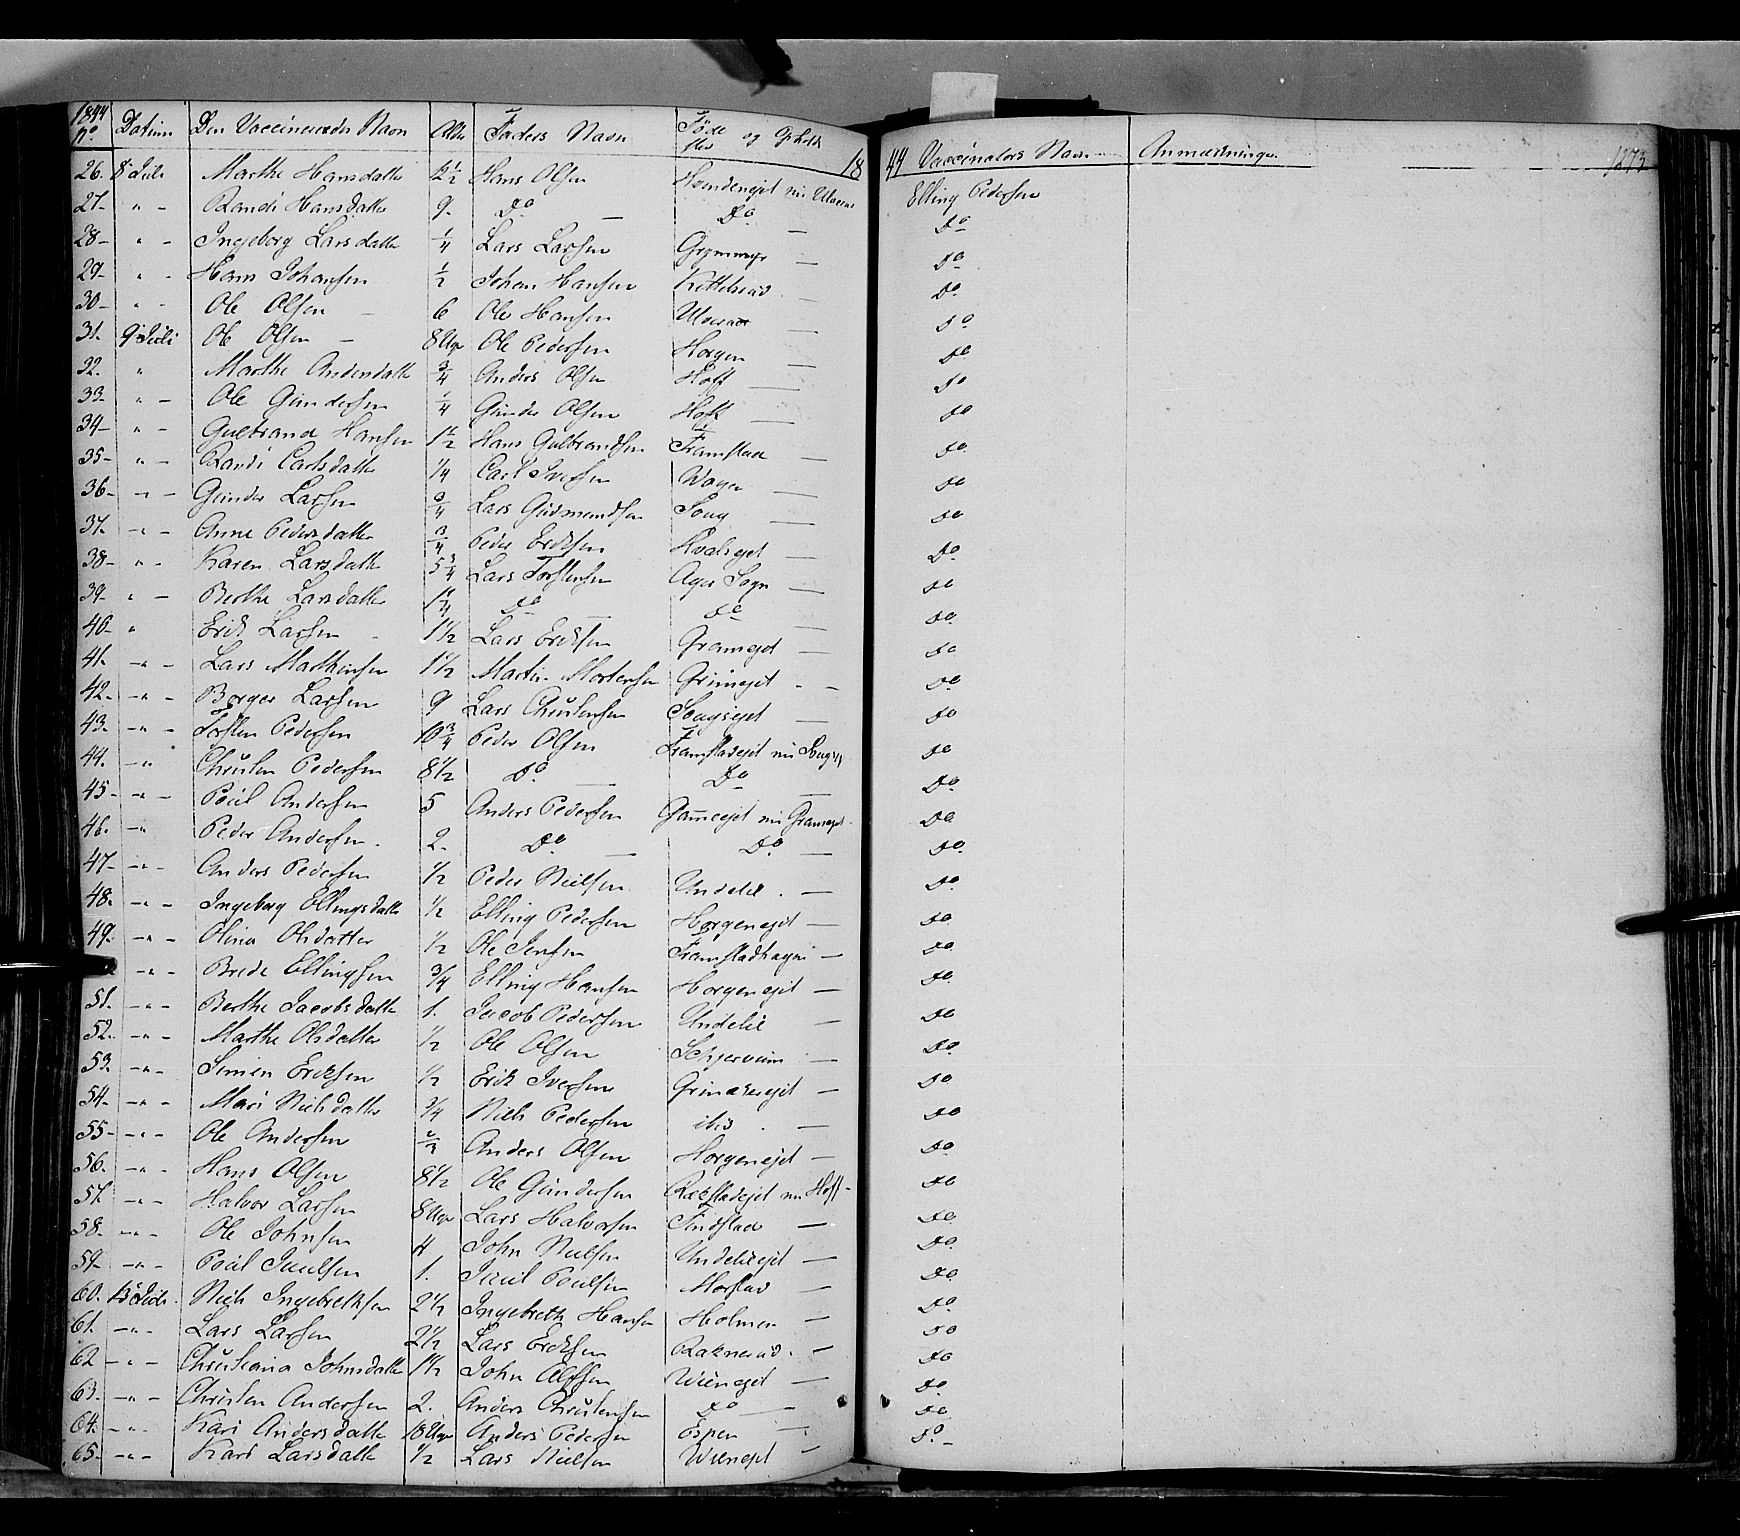 1844 18 44 1273
No Datum Den Vaccineredes Navn Alder Faders Navn Føde og Opholds Sted Vaccinators Navn Anmærkninger
26. 8 Juli Marthe Hansdatter Hans Olsen Elling Pedersen
27. " - Randi Hansdatter 9. Do Do Do
28 " - Ingeborg Larsdatter 1/4 Lars Larsen Grymmyr Do
29 " - Hans Johansen 1/2 Johan Hansen Kittelsrud Do
30 " - Ole Olsen 6 Ole Hansen Ulverud Do
31. 9 Juli Ole Olsen 8 Uger Ole Pedersen Horgen Do
32. " Marthe Andersdatter 3/4 Anders Olsen Hoff Do
33 " - Ole Gundersen 1/4 Gunder Olsen Hoff Do
34 " - Gulbrand Hansen 1 1/2 Hans Gulbrandsen Framstad Do
35 " - Randi Carlsdatter 1/4 Carl Iversen Wager Do
36 " - Gunder Larsen 3/4 Lars Gudmundsen Soug Do
37. " - Anne Pedersdatter 3/4 Peder Eriksen Hvalsejet Do
38 " - Karen Larsdatter 5 3/4 Lars Torstensen Ager Sogn Do
39. " - Berthe Larsdatter Do Do Do
40 " Erik Larsen 1 1/2 Lars Eriksen Gramejet Do
41. " - Lars Marthinsen 1 1/2 Martin Mortensen Grimejet Do
42. " - Borger Larsen 9 Lars Christensen Sougsejet Do
43. " - Torsten Pedersen 10 3/4 Peder Olsen Framstadejet nu Do
44. " Christen Pedersen 8 1/2 Do Do Do
45 " - Poul Andersen 5 Anders Pedersen nu Gramejet Do
46. " Peder Andersen 2. Do Do Do
47. " - Anders Pedersen 1/2 Peder Nielsen Undelie Do
48. " - Ingeborg Ellingsdatter 1/2 Elling Pedersen Horgenejet Do
49. " - Olina Olsdatter 1/2 Ole Jensen Framstadhagen Do
" - Brede Ellingsen 3/4 Elling Hansen Horgenejet Do
51. " - Berthe Jacobsdatter 1. Jacob Pedersen Undelie Do
52. " - Marthe Olsdatter 1/2 Ole Olsen Schjerveim Do
53. " - Simen Eriksen 1/2 Erik Iversen Do
54. " - Mari Nielsdatter 3/4 Niels Pedersen ibid Do
55 " - Ole Andersen Anders Olsen Horgenejet Do
56. " - Hans Olsen 8 1/2 Ole Gundersen nu Hoff Do
57. " - Halvor Larsen 8 Uger Lars Halvorsen Findstad Do
58. " - Ole Johnsen 4 John Nielsen Undelieejet Do
59. " - Poul Juulsen 1. Juul Poulsen Morstad Do
60. 13 Juli Niels Ingebrethsen 2 1/2 Ingebreth Hansen Holmen Do
61. " - Lars Larsen 2 1/2 Lars Eriksen Raknerud Do
62 " - Christiana Johnsdatter 1 1/2 John Alfsen Wienejet Do
63. " - Christen Andersen 2. Anders Christensen Do Do
64. " - Kari Andersdatter 18 Uger Anders Pedersen Espen Do
65. " - Kari Larsdatter 1/2 Lars Nielsen Wienejet Do